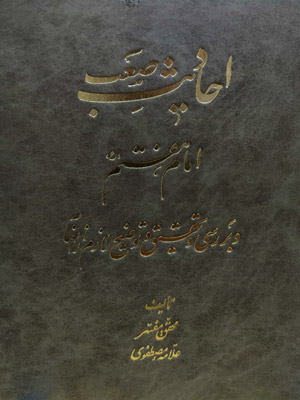 احادیث صعب
امام هشتم
و بررسی و تحقیق و توضیح لازم در آنها
تالیف
محقق مفسر
علامه مصطفوی